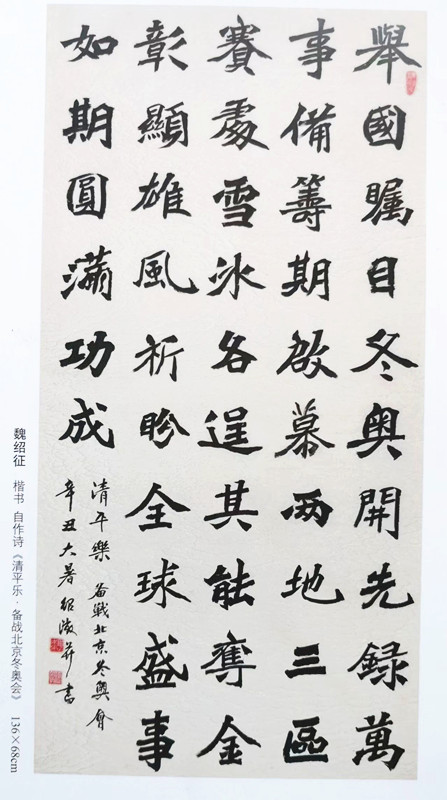 舉國矚目冬奥開先録萬
事備籌期啟幕兩地三區
賽處雪冰各逞其能奪金
彰顯雄風祈盼全球盛事
如期圓滿功成
清平樂 备戰北京冬奥會
辛丑大暑紹并書
魏绍征 楷书 自作诗《清平乐·备战北京冬奥会》 136×68cm